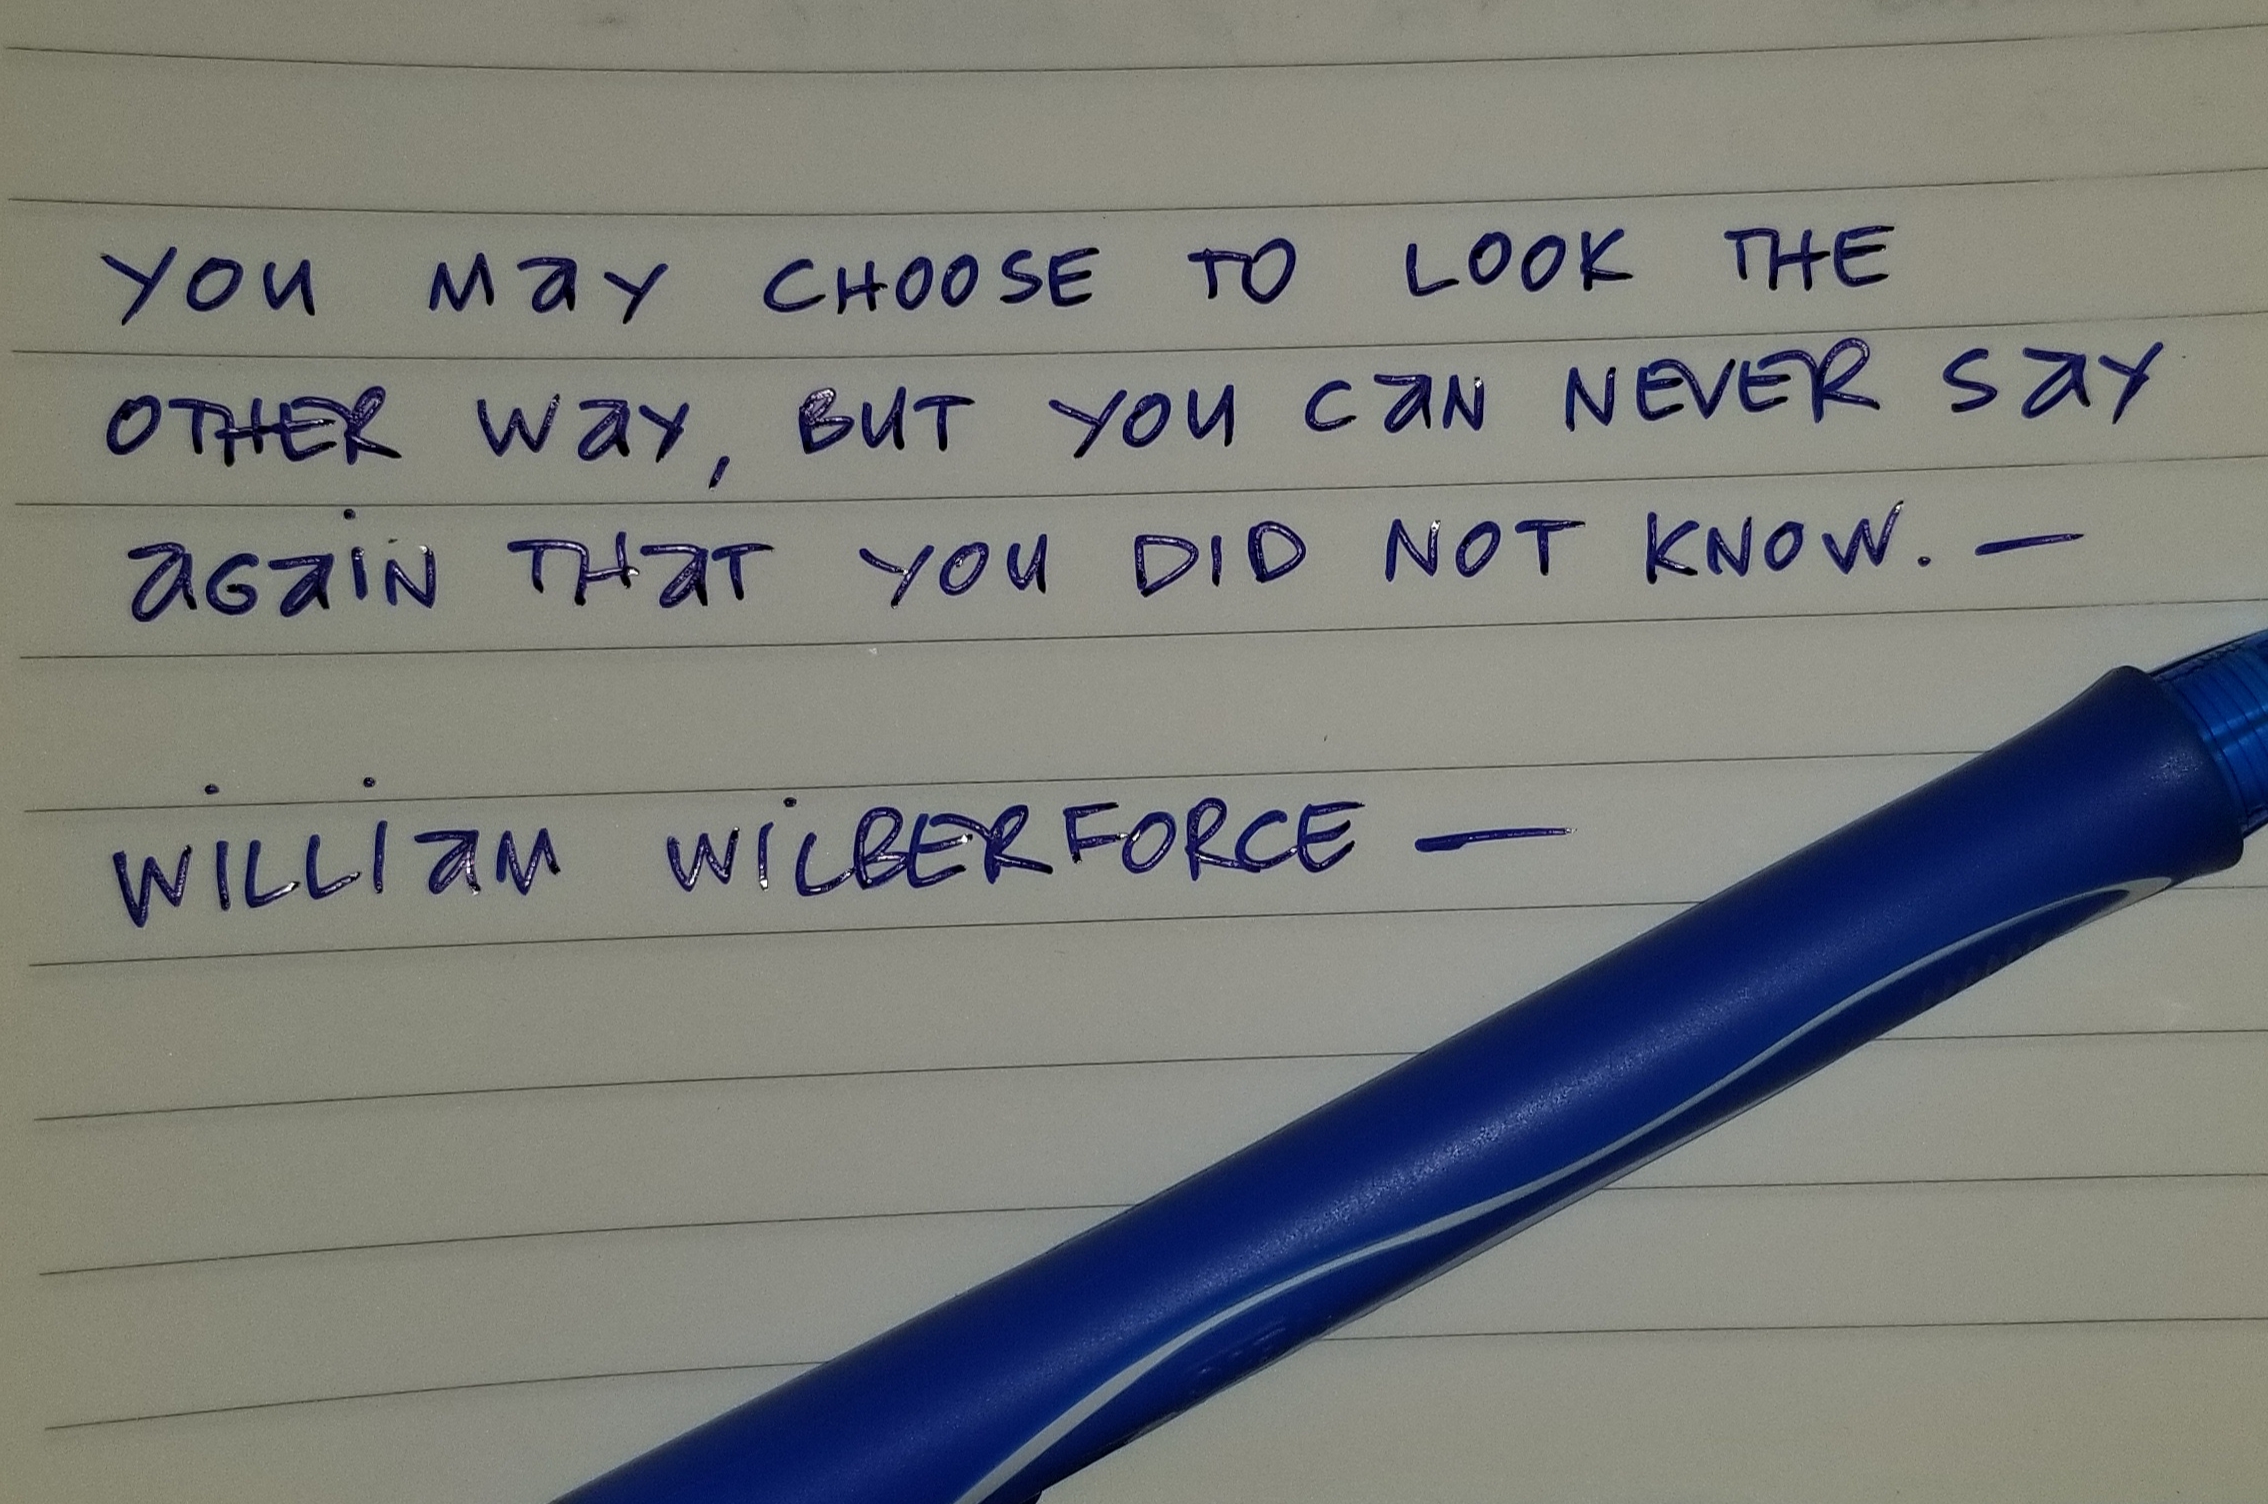 YOU MaY CHOOSE TO LOOK THE
OTHER WaY, BUT YOU CaN NEVER SaY
aGaiN THaT YOU DID NOT KNOW. —
WiLLiaM WiLBERFORCE —